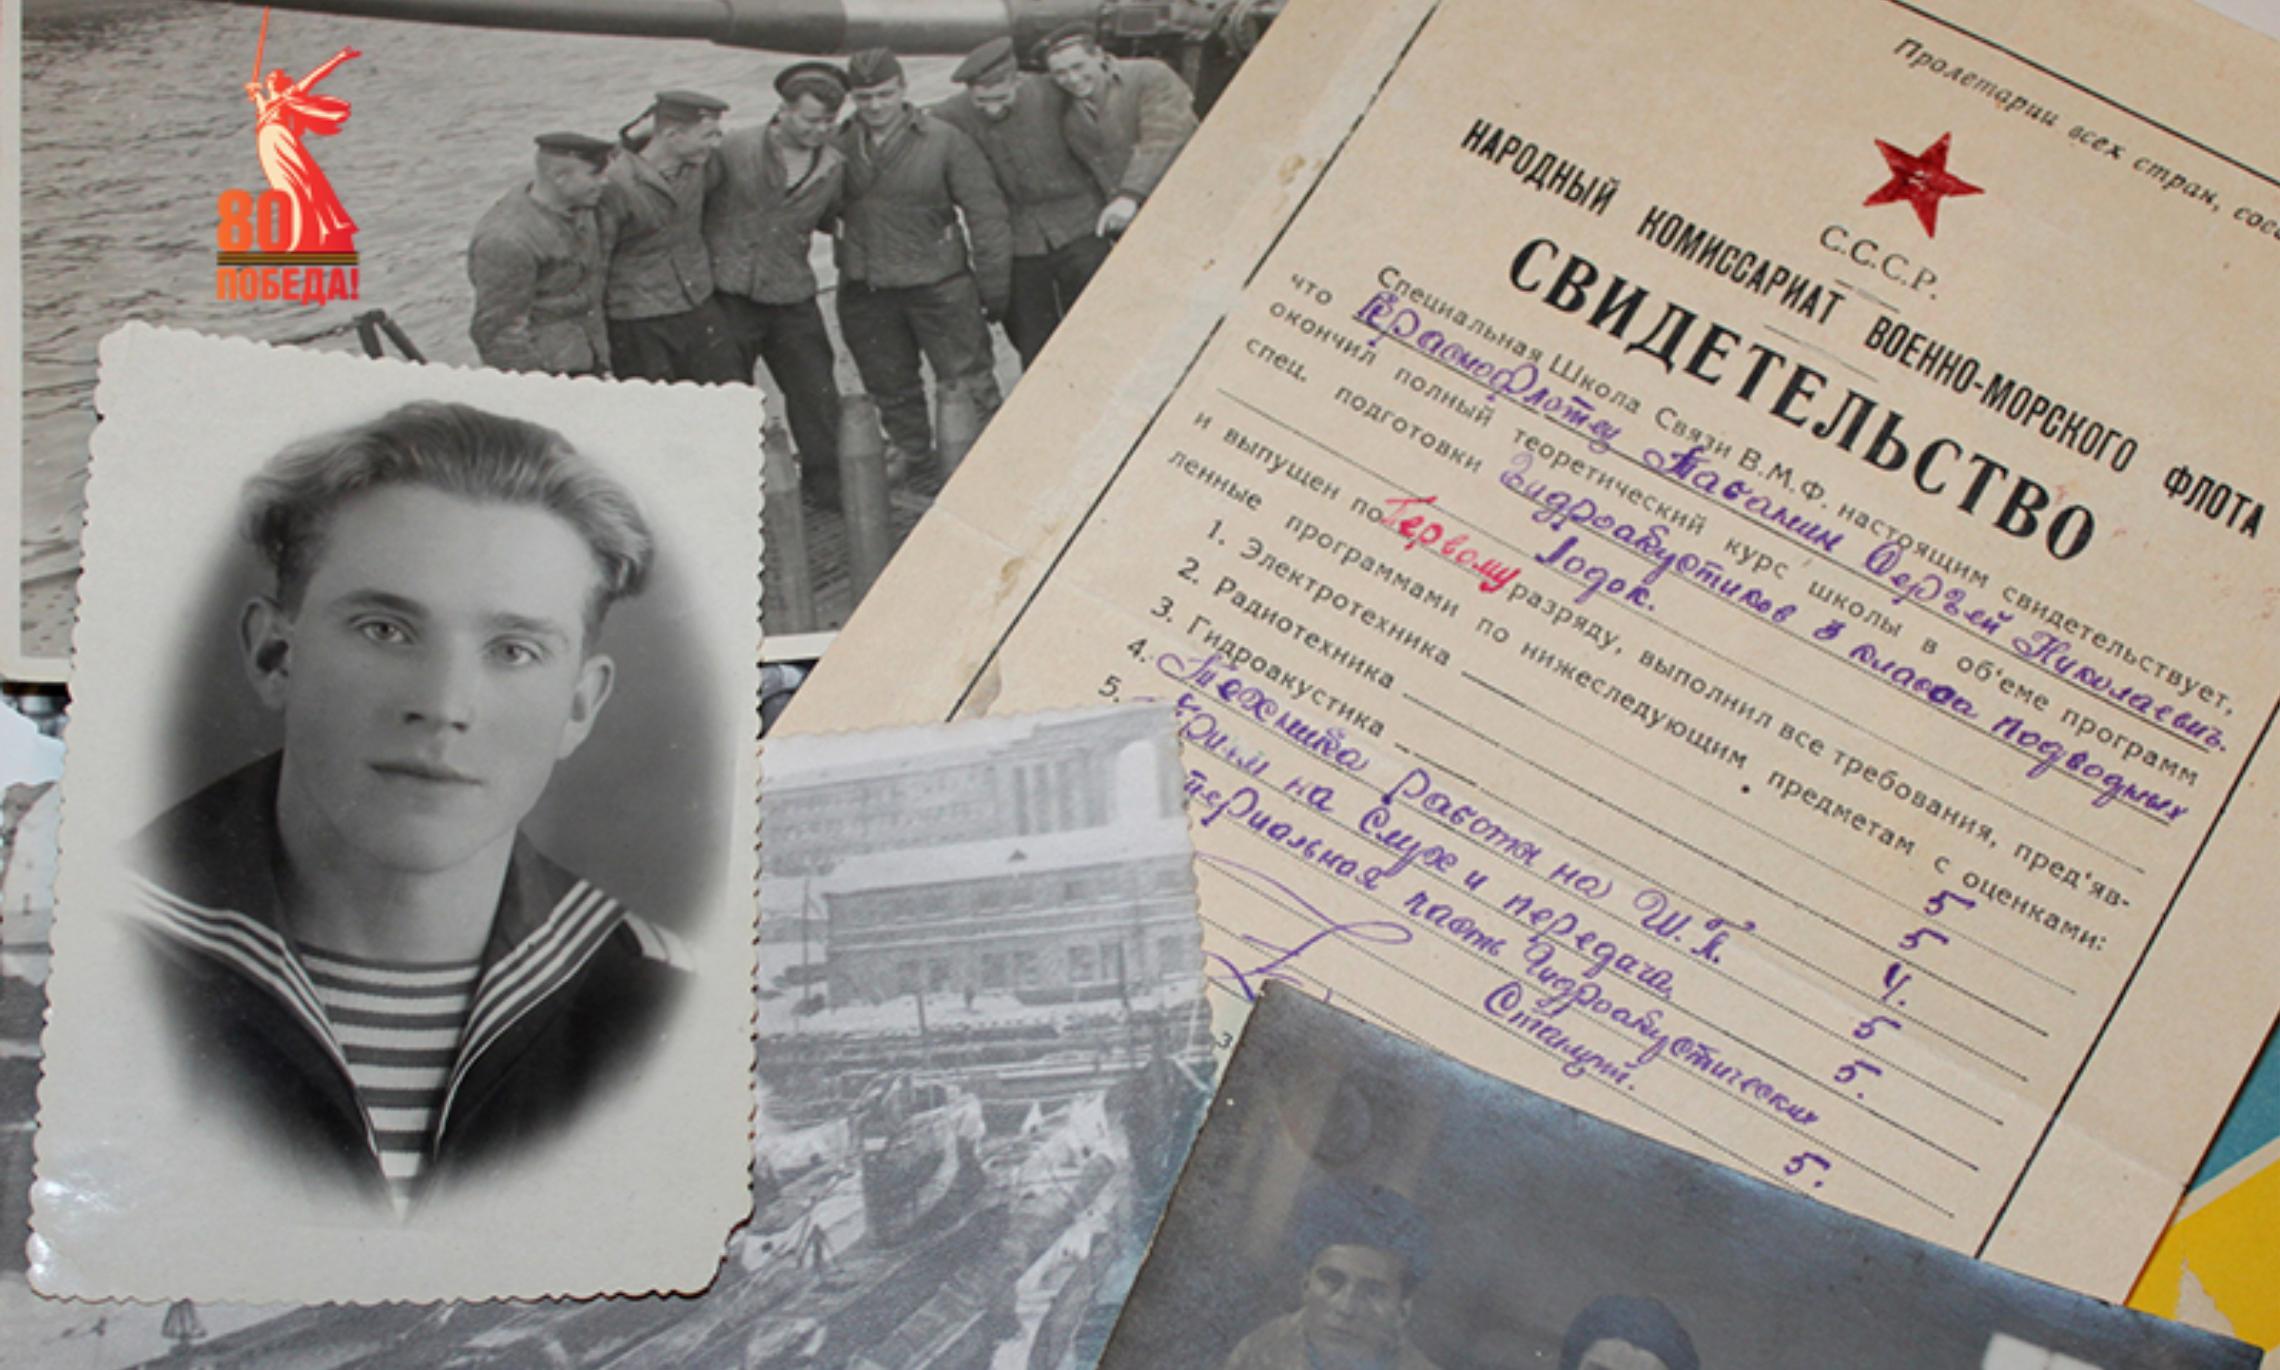 80
ПОБЕДА!
Пролетарии всех стран, сое
С.С.С.Р.
НАРОДНЫЙ КОМИССАРИАТ ВОЕННО-МОРСКОГО ФЛОТА
СВИДЕТЕЛЬСТВО
Специальная Школа Связи В.М.Ф. настоящим свидетельствует,
что Краснофлотец Сергей Николаевич.
окончил полный теоретический курс школы в об'еме программ
спец. подготовки Гидроакустиков в класса подводных
лодок.
и выпущен по Первому разряду, выполнил все требования, пред'яв-
ленные программами по нижеследующим предметам с оценками:
1. Электротехника 5
2. Радиотехника 5
3. Гидроакустика 4.
4. Техника работы на Ш.П. 5
5. Приём на Слух и передача 5.
териальная часть Гидроакустических
Станций. 5.